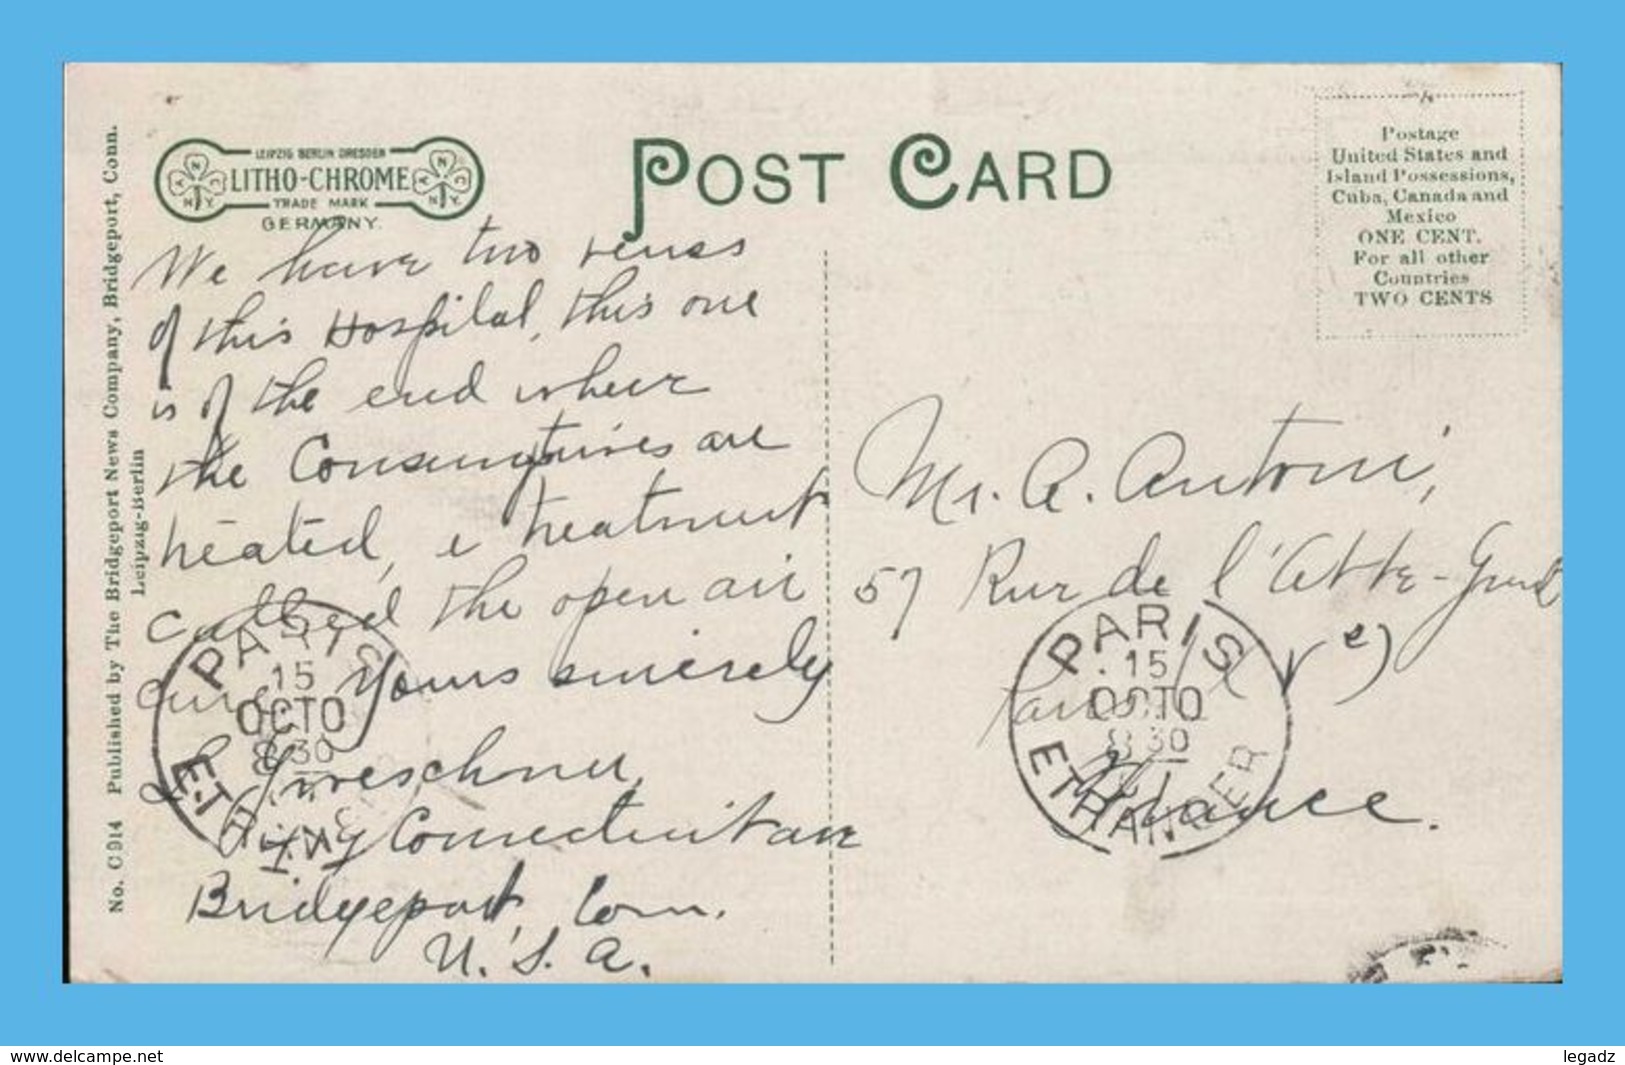 LEIPZIG BERLIN DRESDEN
LITHO-CHROME
TRADE MARK
GERMANY.
POST CARD
Postage
United States and
Island Possessions,
Cuba, Canada and
Mexico
ONE CENT.
For all other
Countries
TWO CENTS
No. C 914 Published by The Bridgeport News Company, Bridgeport, Conn.
Leipzig-Berlin
We have two views
of this Hospital, this one
is of the end where
the Consumptives are
treated, a treatment
called the open air
cure. Yours sincerely
Connecticut ave
Bridgeport, Conn.
U.S.A.
Mr. A. Antoni,
57 Rue de l'Abbe-
Paris
France.
PARIS
15
OCTO
8 30
ETRANGER
PARIS
15
OCTO
8 30
ETRANGER
www.delcampe.net
legadz